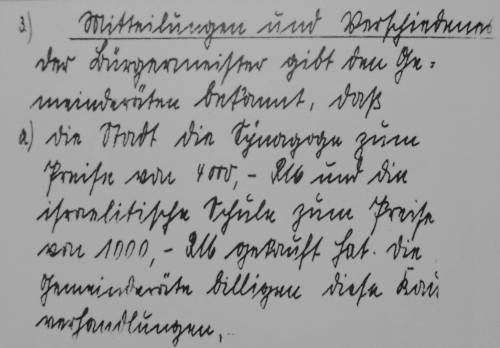 3.) Mitteilungen und Verschiedenes
der Bürgermeister gibt den Ge=
meinderäten bekannt, daß
a.) die Stadt die Synagoge zum
Preise von 4000,- RM und die
israelitische Schule zum Preise
von 1000,- RM gekauft hat. Die
Gemeinderäte billigen diese Kau
verhandlungen.